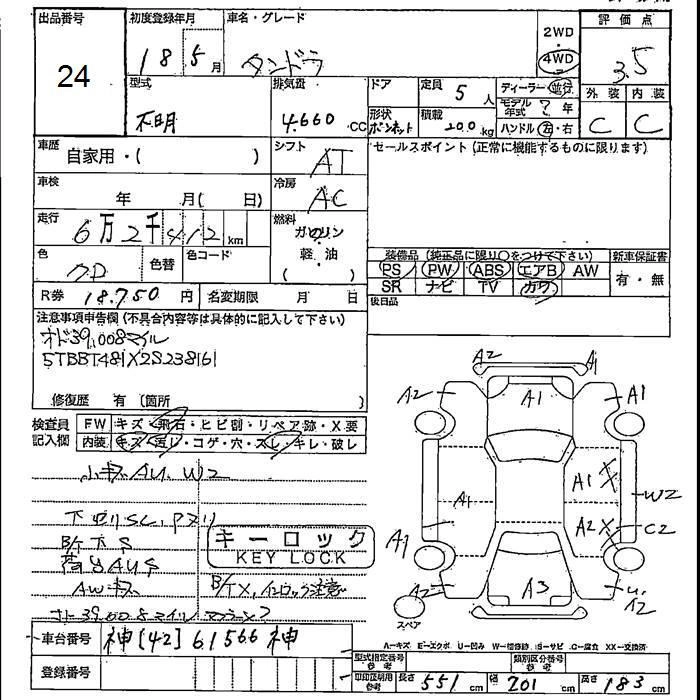 出品番号
24
初度登録年月
18 5月
車名・グレード
タンドラ
2WD
・
4WD
評価点
3.5
外装 内装
C C
型式
不明
排気量
4.660 CC
ドア
形状
ボンネット
定員 5 人
積載 200 kg
ディーラー・並行
モデル年式 ? 年
ハンドル 左・右
車歴
自家用・( )
シフト
AT
セールスポイント(正常に機能するものに限ります)
車検
年 月( 日)
冷房
AC
走行
6万2千412 km
燃料
ガソリン
・
軽油
( )
色
色替
色コード
R券 18.750 円
名変期限 月 日
装備品(純正品に限り○をつけて下さい)
PS PW ABS エアB AW
SR ナビ TV カワ
新車保証書
有・無
後日品
注意事項申告欄(不具合内容等は具体的に記入して下さい)
オド39,008マイル
5TBBT481X2S238161
修復歴 有(箇所 )
検査員記入欄
FW キズ・飛石・ヒビ割・リペア跡・X要
内装 キズ・汚レ・コゲ・穴・スレ・キレ・破レ
小キズ AU. W2
B/ド S
AWキズ
キーロック
KEY LOCK
A2 A1
A2 A1 A1
A1 A1 W2
A1 A2 C2
A2 A3 A2
スペア
A-キズ E-エクボ U-凹み W-補修跡 S-サビ C-腐食 XX-交換済
車台番号 神[42]61566神
登録番号
型式指定番号
参考
類別区分番号
参考
参考
長さ 551 cm 幅 201 cm 高さ 183 cm